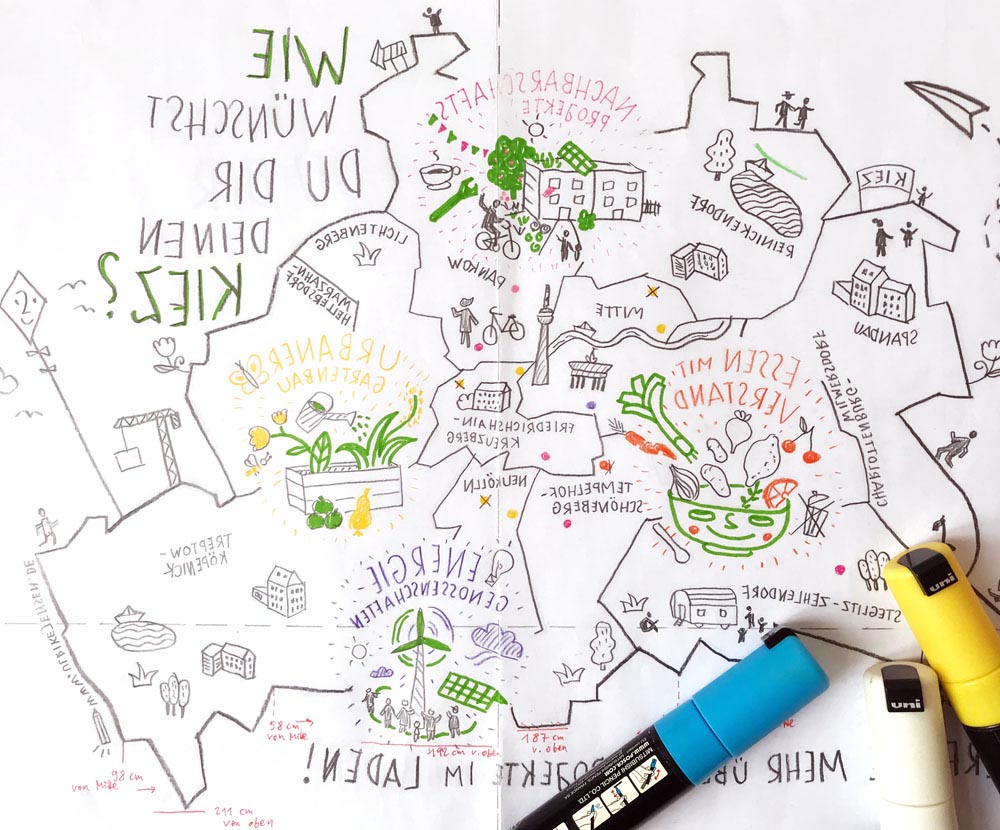 WIE
WÜNSCHST
DU DIR
DEINEN
KIEZ?
NACHBARSCHAFTS
PROJEKTE
REINICKENDORF
KIEZ
LICHTENBERG
PANKOW
MARZAHN-
HELLERSDORF
MITTE
SPANDAU
URBANER
GARTENBAU
ESSEN MIT
VERSTAND
CHARLOTTENBURG-
WILMERSDORF
FRIEDRICHSHAIN-
KREUZBERG
NEUKÖLLN
TEMPELHOF-
SCHÖNEBERG
TREPTOW-
KÖPENICK
ENERGIE
GENOSSENSCHAFTEN
STEGLITZ-ZEHLENDORF
www.ulrikejensen.de
58 cm
von Mitte
98 cm
von Mitte
192 cm v. oben
187 cm
v. oben
211 cm
von oben
MEHR
IM LADEN!
MITSUBISHI PENCIL CO., LTD.
WWW.POSCA.COM
uni
uni